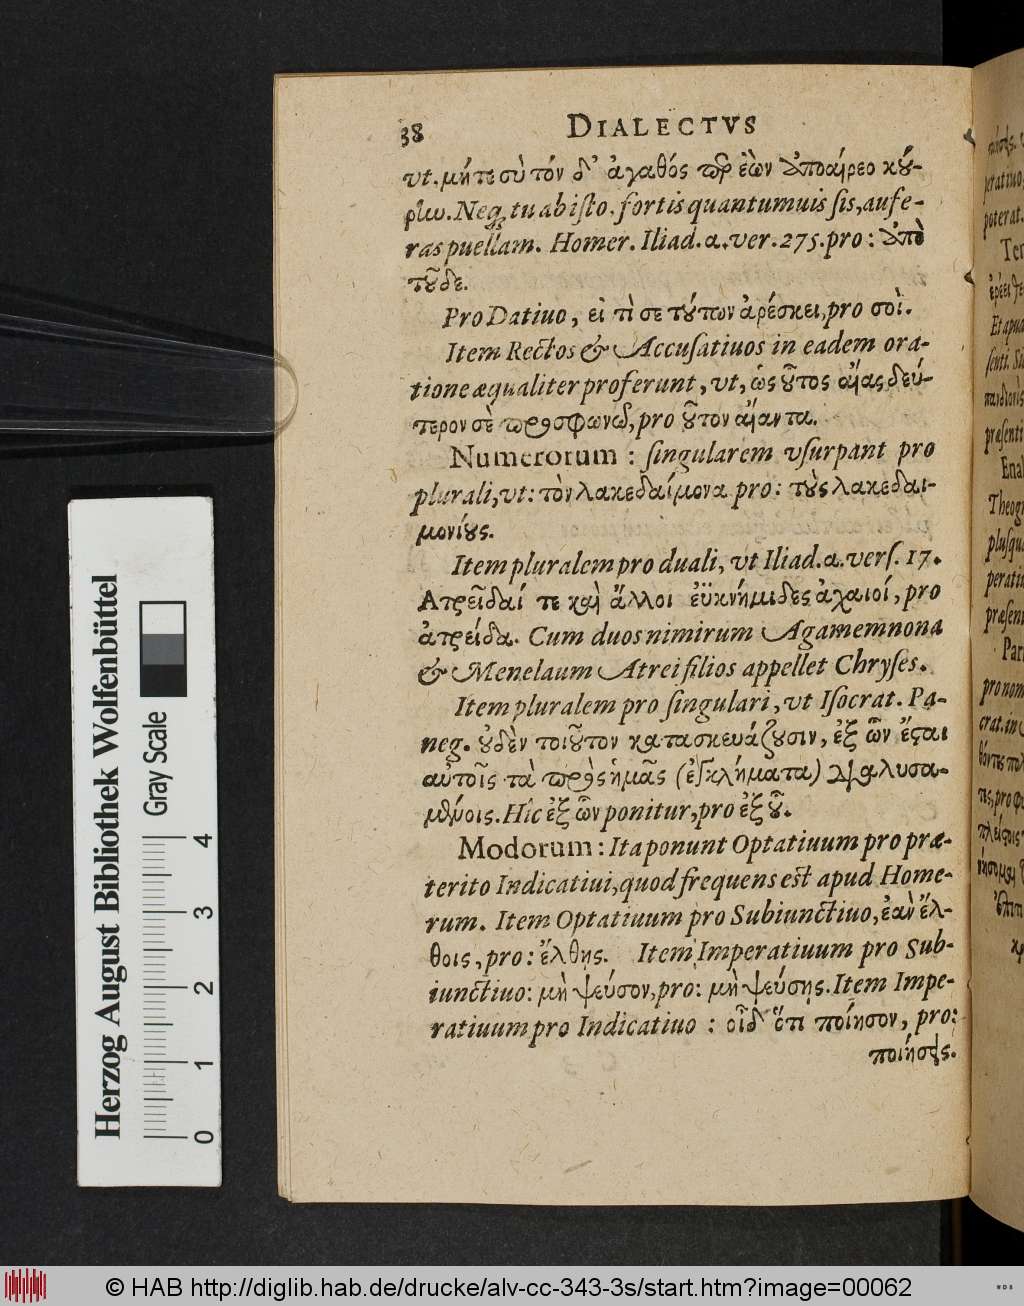 38 DIALECTVS
vt. μήτε σὺ τόνδ' ἀγαθός περ ἐὼν ἀποαίρεο κού-
ρην. Neq; tu ab isto. fortis quantumuis sis, aufe-
ras puellam. Homer. Iliad. α. ver. 275. pro: ἀπὸ
τοῦδε.
Pro Datiuo, εἰ τὶ σε τύπων ἀρέσκει, pro σοὶ.
Item Rectos & Accusatiuos in eadem ora-
tione æqualiter proferunt, vt, ὡς οὗτος αἴας δεύ-
τερον σὲ προσφωνῶ, pro οὗτον αἴαντα.
Numerorum: singularem vsurpant pro
plurali, vt: τὸν λακεδαίμονα pro: τοὺς λακεδαι-
μονίους.
Item pluralem pro duali, vt Iliad. α. vers. 17.
Ατρεῖδαί τε καὶ ἄλλοι ἐϋκνήμιδες ἀχαιοί, pro
ἀτρείδα. Cum duos nimirum Agamemnona
& Menelaum Atrei filios appellet Chryses.
Item pluralem pro singulari, vt Isocrat. Pa-
neg. οὐδὲν τοιοῦτον κατασκευάζουσιν, ἐξ ὧν ἔσται
αὐτοῖς τὰ πρὸς ἡμᾶς (ἐγκλήματα) διαλυσα-
μένοις. Hîc ἐξ ὧν ponitur, pro ἐξ οὗ.
Modorum: Ita ponunt Optatiuum pro præ-
terito Indicatiui, quod frequens est apud Home-
rum. Item Optatiuum pro Subiunctiuo, ἐὰν ἔλ-
θοις, pro: ἔλθῃς. Item Imperatiuum pro Sub-
iunctiuo: μὴ ψεύσον, pro: μὴ ψεύσῃς. Item Impe-
ratiuum pro Indicatiuo: οἶδ' ὅτι ποίησον, pro:
ποιήσεις.
Herzog August Bibliothek Wolfenbüttel
Gray Scale
0 1 2 3 4
© HAB http://diglib.hab.de/drucke/alv-cc-343-3s/start.htm?image=00062